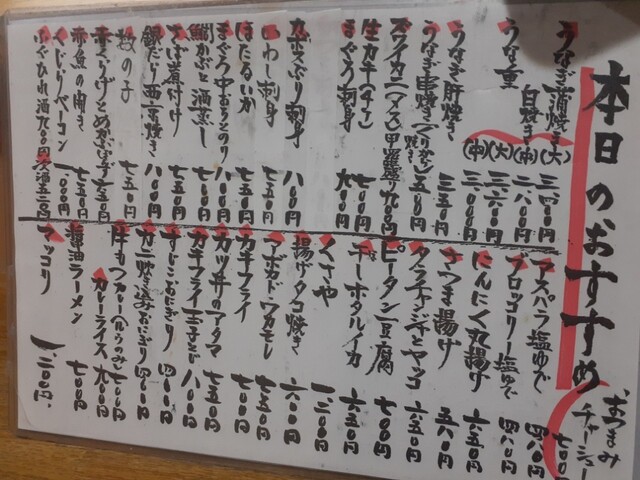 本日のおすすめ
おつまみチャーシュー 七〇〇円
うなぎ蒲焼き(大) 三、四〇〇円
白焼き(中) 二、八〇〇円
うな重(大) 三、六〇〇円
(中)
うなぎ肝焼き 三五〇円
うなぎ串焼き
ズワイカニ(メス)甲羅盛り 九〇〇円
生カキ 七〇〇円
まぐろ刺身 九〇〇円
カンパチ刺身 八〇〇円
いわし刺身 七五〇円
ほたるいか 七五〇円
鯛かぶと酒蒸し 七〇〇円
さば煮付け 七五〇円
銀だら西京焼き 八〇〇円
数の子 七五〇円
赤魚の開き 七五〇円
くじらベーコン 一、〇〇〇円
ふぐひれ酒 九〇〇円
アスパラ塩ゆで 四八〇円
ブロッコリー塩ゆで 四八〇円
にんにく丸揚げ 六五〇円
さつま揚げ 五八〇円
タラチャンジャとヤッコ 六五〇円
ピータン豆腐 七〇〇円
チーホタルイカ 六五〇円
くさや 一、二〇〇円
揚げタコ焼き 六〇〇円
アボカド・ワカモレ 七五〇円
カキフライ 七〇〇円
カツサンのアタマ 七五〇円
カキフライ玉子とじ 八〇〇円
すじこおにぎり 四〇〇円
カニ炊き込みおにぎり 四〇〇円
牛もつカレー(ルゥのみ) 七〇〇円
カレーライス 九〇〇円
醤油ラーメン 七〇〇円
マッコリ 一、二〇〇円